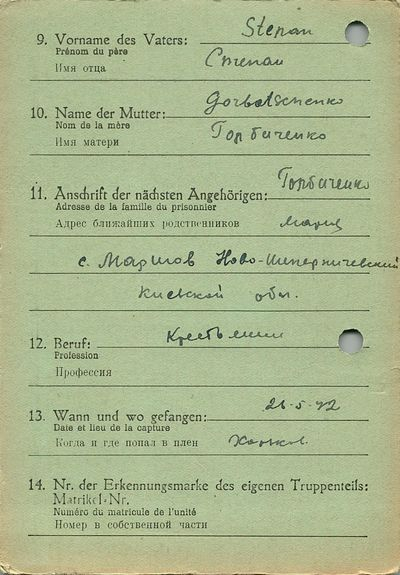 Stepan
9. Vorname des Vaters:
Prénom du père
Степан
Имя отца
Gorbatschenko
10. Name der Mutter:
Nom de la mère
Горбаченко
Имя матери
Горбаченко
11. Anschrift der nächsten Angehörigen:
Adresse de la famille du prisonnier
Адрес ближайших родственников
Мария
с. Ново-
Киевской обл.
12. Beruf:
Profession
Профессия
21-5-42
13. Wann und wo gefangen:
Date et lieu de la capture
Когда и где попал в плен
Харков.
14. Nr. der Erkennungsmarke des eigenen Truppenteils:
Matrikel-Nr.
Numéro du matricule de l'unité
Номер в собственной части